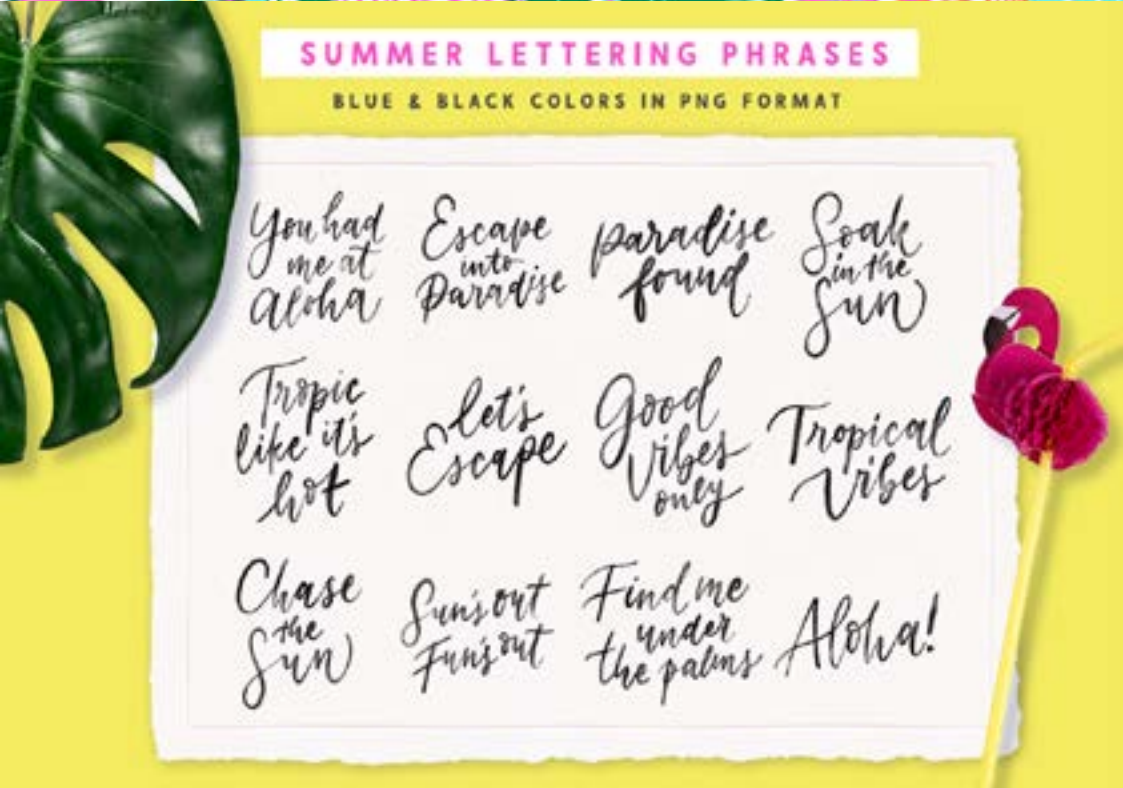 SUMMER LETTERING PHRASES
BLUE & BLACK COLORS IN PNG FORMAT
You had
me at
Aloha
Escape
into
Paradise
paradise
found
Soak
in the
Sun
Tropic
like it's
hot
let's
Escape
Good
vibes
only
Tropical
Vibes
Chase
the
Sun
Sun's out
Fun's out
Find me
under
the palms
Aloha!